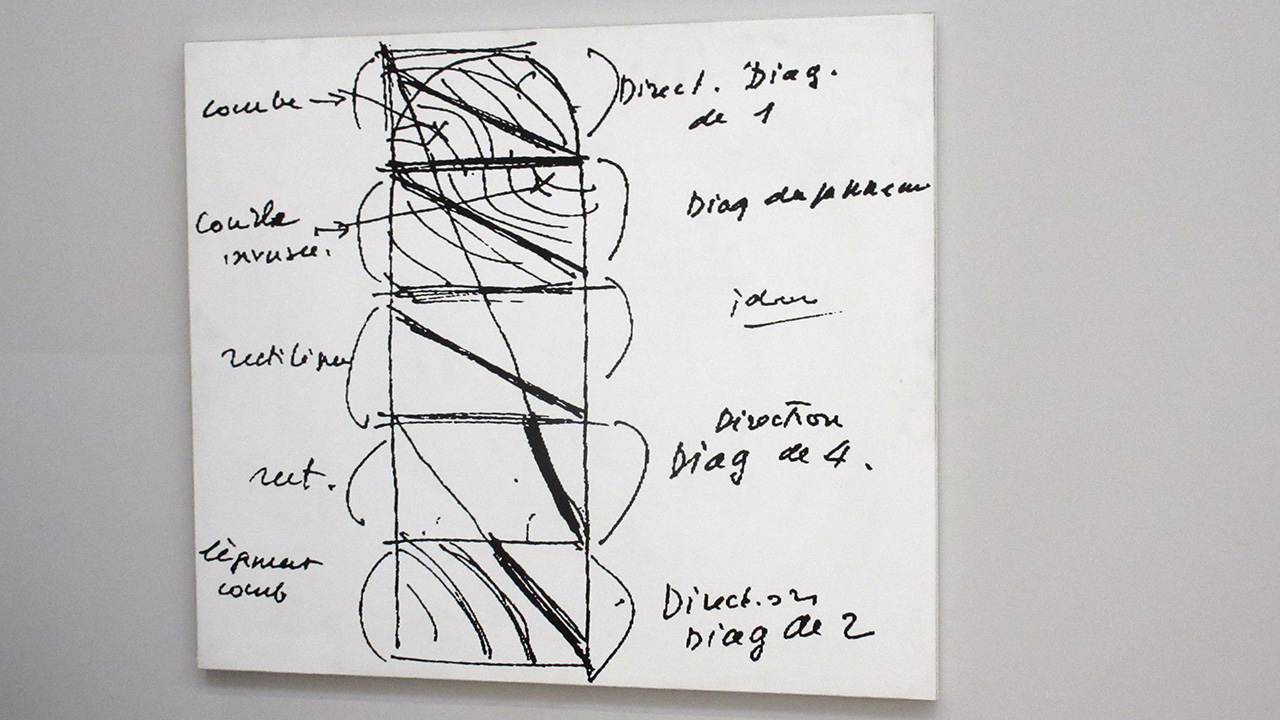 courbe
Direct. Diag.
de 1
Courbe
inversée.
Diag du panneau
idem
rectiligne
Direction
Diag de 4.
rect.
légèrement
courb
Direction
Diag de 2